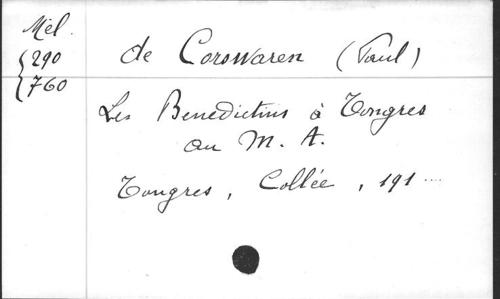 Mél.
290
760
de Corswarem (Paul)
Les Benedictins à Tongres
au M. A.
Tongres, Collée, 191....